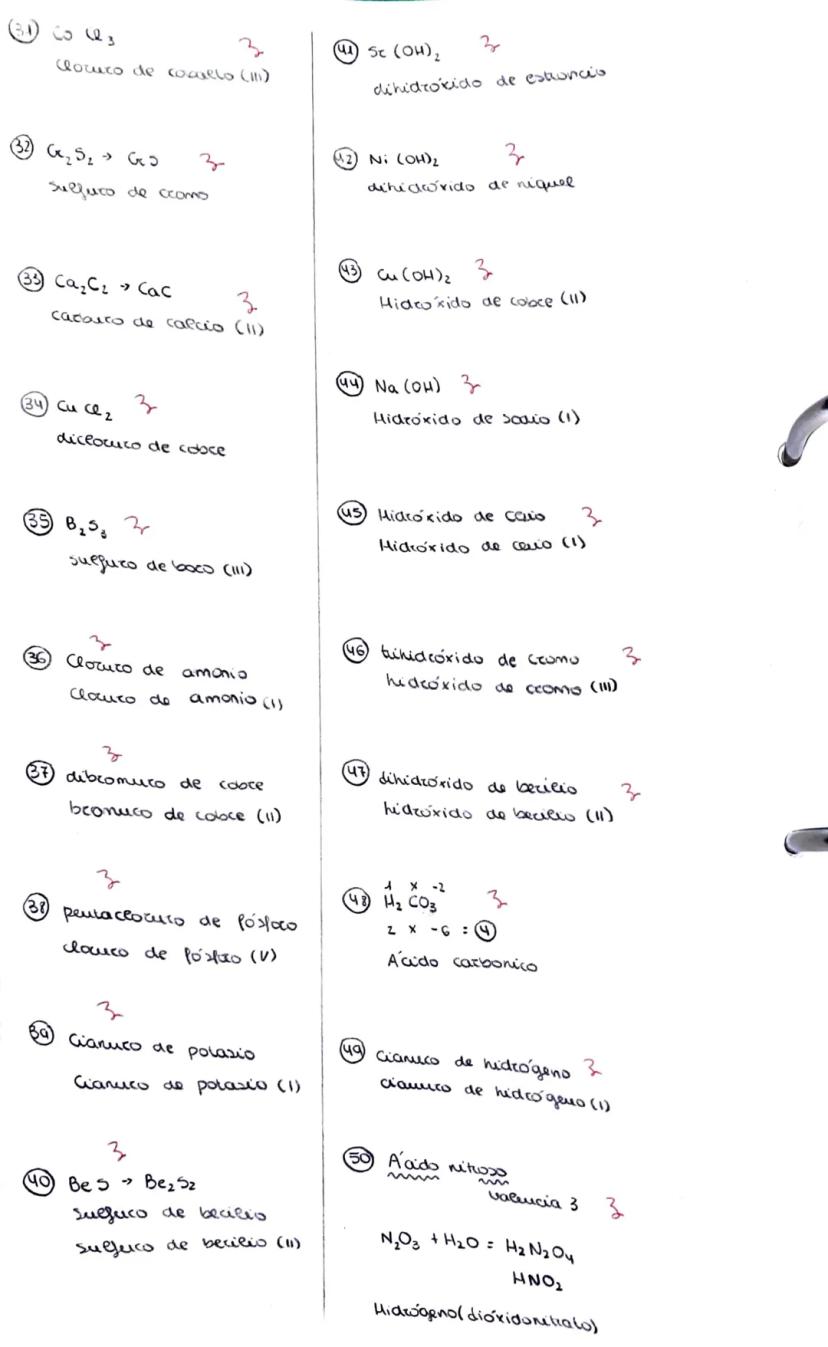 31 Co Cl₃
Cloruro de cobalto (III)
32 Cr₂S₂ → CrS
sulfuro de cromo
33 Ca₂C₂ → CaC
carburo de calcio (II)
34 Cu Cl₂
dicloruro de cobre
35 B₂S₃
sulfuro de boro (III)
36 Cloruro de amonio
Cloruro de amonio (I)
37 dibromuro de cobre
bromuro de cobre (II)
38 pentacloruro de fósforo
cloruro de fósforo (V)
39 Cianuro de potasio
Cianuro de potasio (I)
40 Be S → Be₂S₂
sulfuro de berilio
sulfuro de berilio (II)
41 Sr (OH)₂
dihidróxido de estroncio
42 Ni (OH)₂
dihidróxido de niquel
43 Cu (OH)₂
Hidróxido de cobre (II)
44 Na (OH)
Hidróxido de sodio (I)
45 Hidróxido de
Hidróxido de
46 trihidróxido de cromo
hidróxido de cromo (III)
47 dihidróxido de berilio
hidróxido de berilio (II)
48 1 x -2
H₂ CO₃
2 x -6 = 4
Ácido carbonico
49 Cianuro de hidrógeno
cianuro de hidrógeno (I)
50 Ácido nitroso
valencia 3
N₂O₃ + H₂O = H₂N₂O₄
HNO₂
Hidrógeno(dióxidonitrato)